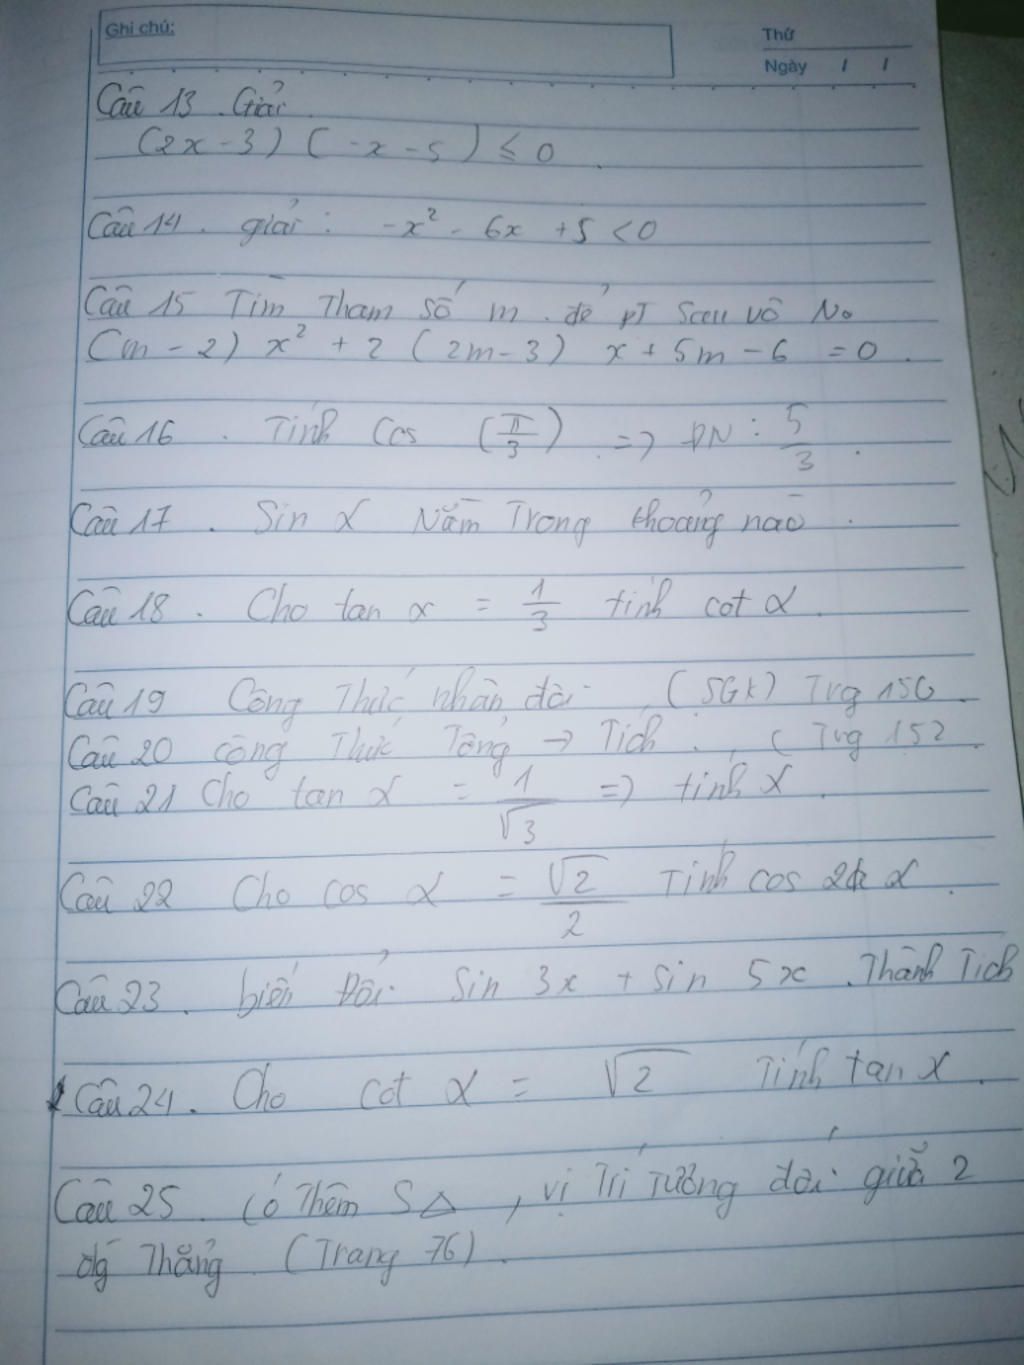 Ghi chú:
Thứ
Ngày / /
Câu 13. Giải
(2x - 3) (-x - 5) ≤ 0
Câu 14. giải: -x² - 6x + 5 < 0
Câu 15 Tìm Tham số m để pT Sau vô No
(m - 2) x² + 2 (2m - 3) x + 5m - 6 = 0.
Câu 16. Tính Cos (π/3) => ĐN: 5/3.
Câu 17. Sin α Nằm Trong khoảng nào.
Câu 18. Cho tan α = 1/3 tính cot α.
Câu 19 Công Thức nhân đôi (SGK) Trg 150
Câu 20 công Thức Tổng → Tích. (Trg 152
Câu 21 Cho tan α = 1/√3 => tính α.
Câu 22 Cho cos α = √2/2 Tính cos 2 α.
Câu 23. biến Đổi Sin 3x + Sin 5x. Thành Tích
Câu 24. Cho cot α = √2 Tính tan α.
Câu 25. Có Thêm S△, vị Trí Tương đối giữa 2
đg Thẳng (Trang 76).